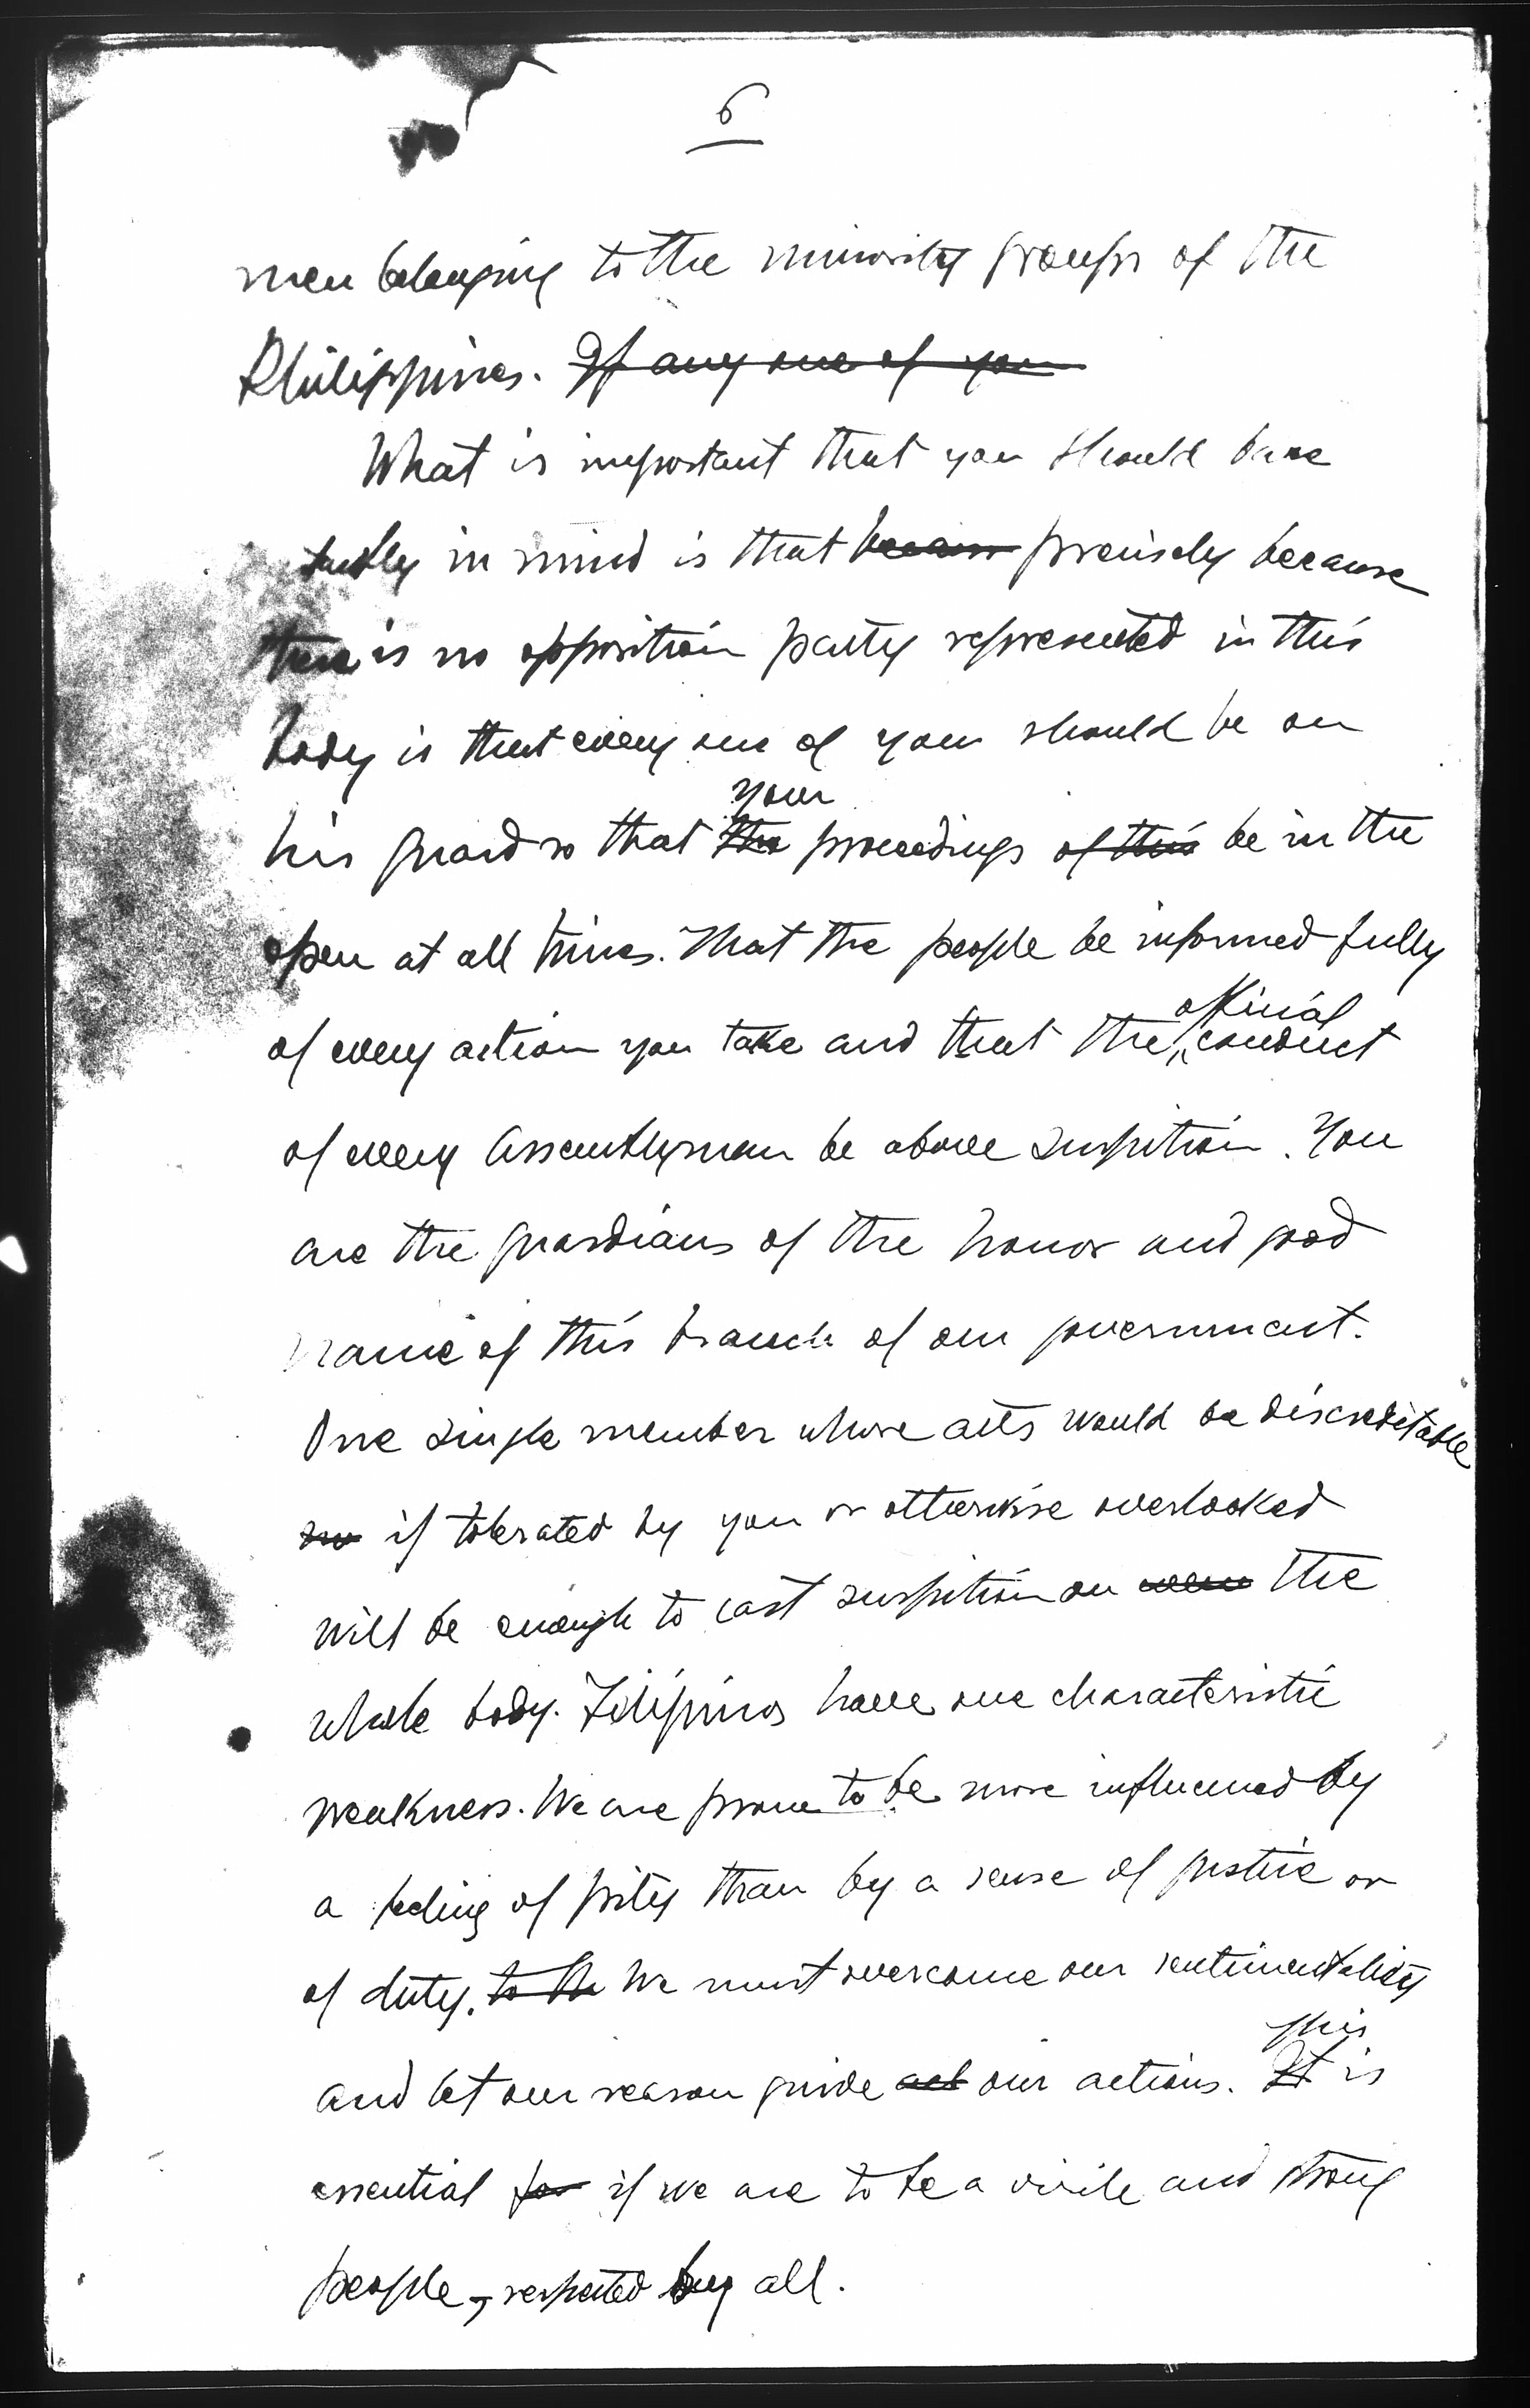 6
men belonging to the minority groups of the
Philippines. If any one of you
What is important that you should have
in mind is that because precisely because
there is no opposition party represented in this
body is that every one of you should be on
your
his guard so that the proceedings of this be in the
open at all times. That the people be informed fully
official
of every action you take and that the conduct
of every Assemblyman be above suspition. You
are the guardians of the honor and good
name of this branch of our government.
One single member whose acts would be discreditable
if tolerated by you or otherwise overlooked
will be enough to cast suspition on the
whole body. Filipinos have one characteristic
weakness. We are prone to be more influenced by
a feeling of pity than by a sense of justice or
of duty. to the We must overcome our sentimentality
This
and let our reason guide act our actions. It is
essential for if we are to be a virile and strong
people, respected by all.